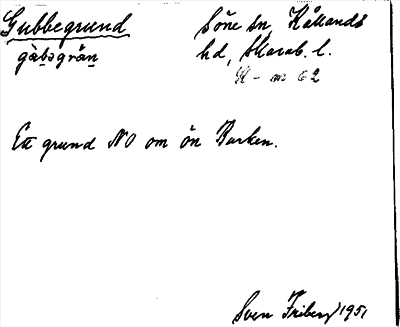 Gubbegrund
gàbəgrán
Söne sn, Kållands
hd, Skarab. l.
St - m 62
Ett grund NO om ön Barken.
Sven Friberg 1951